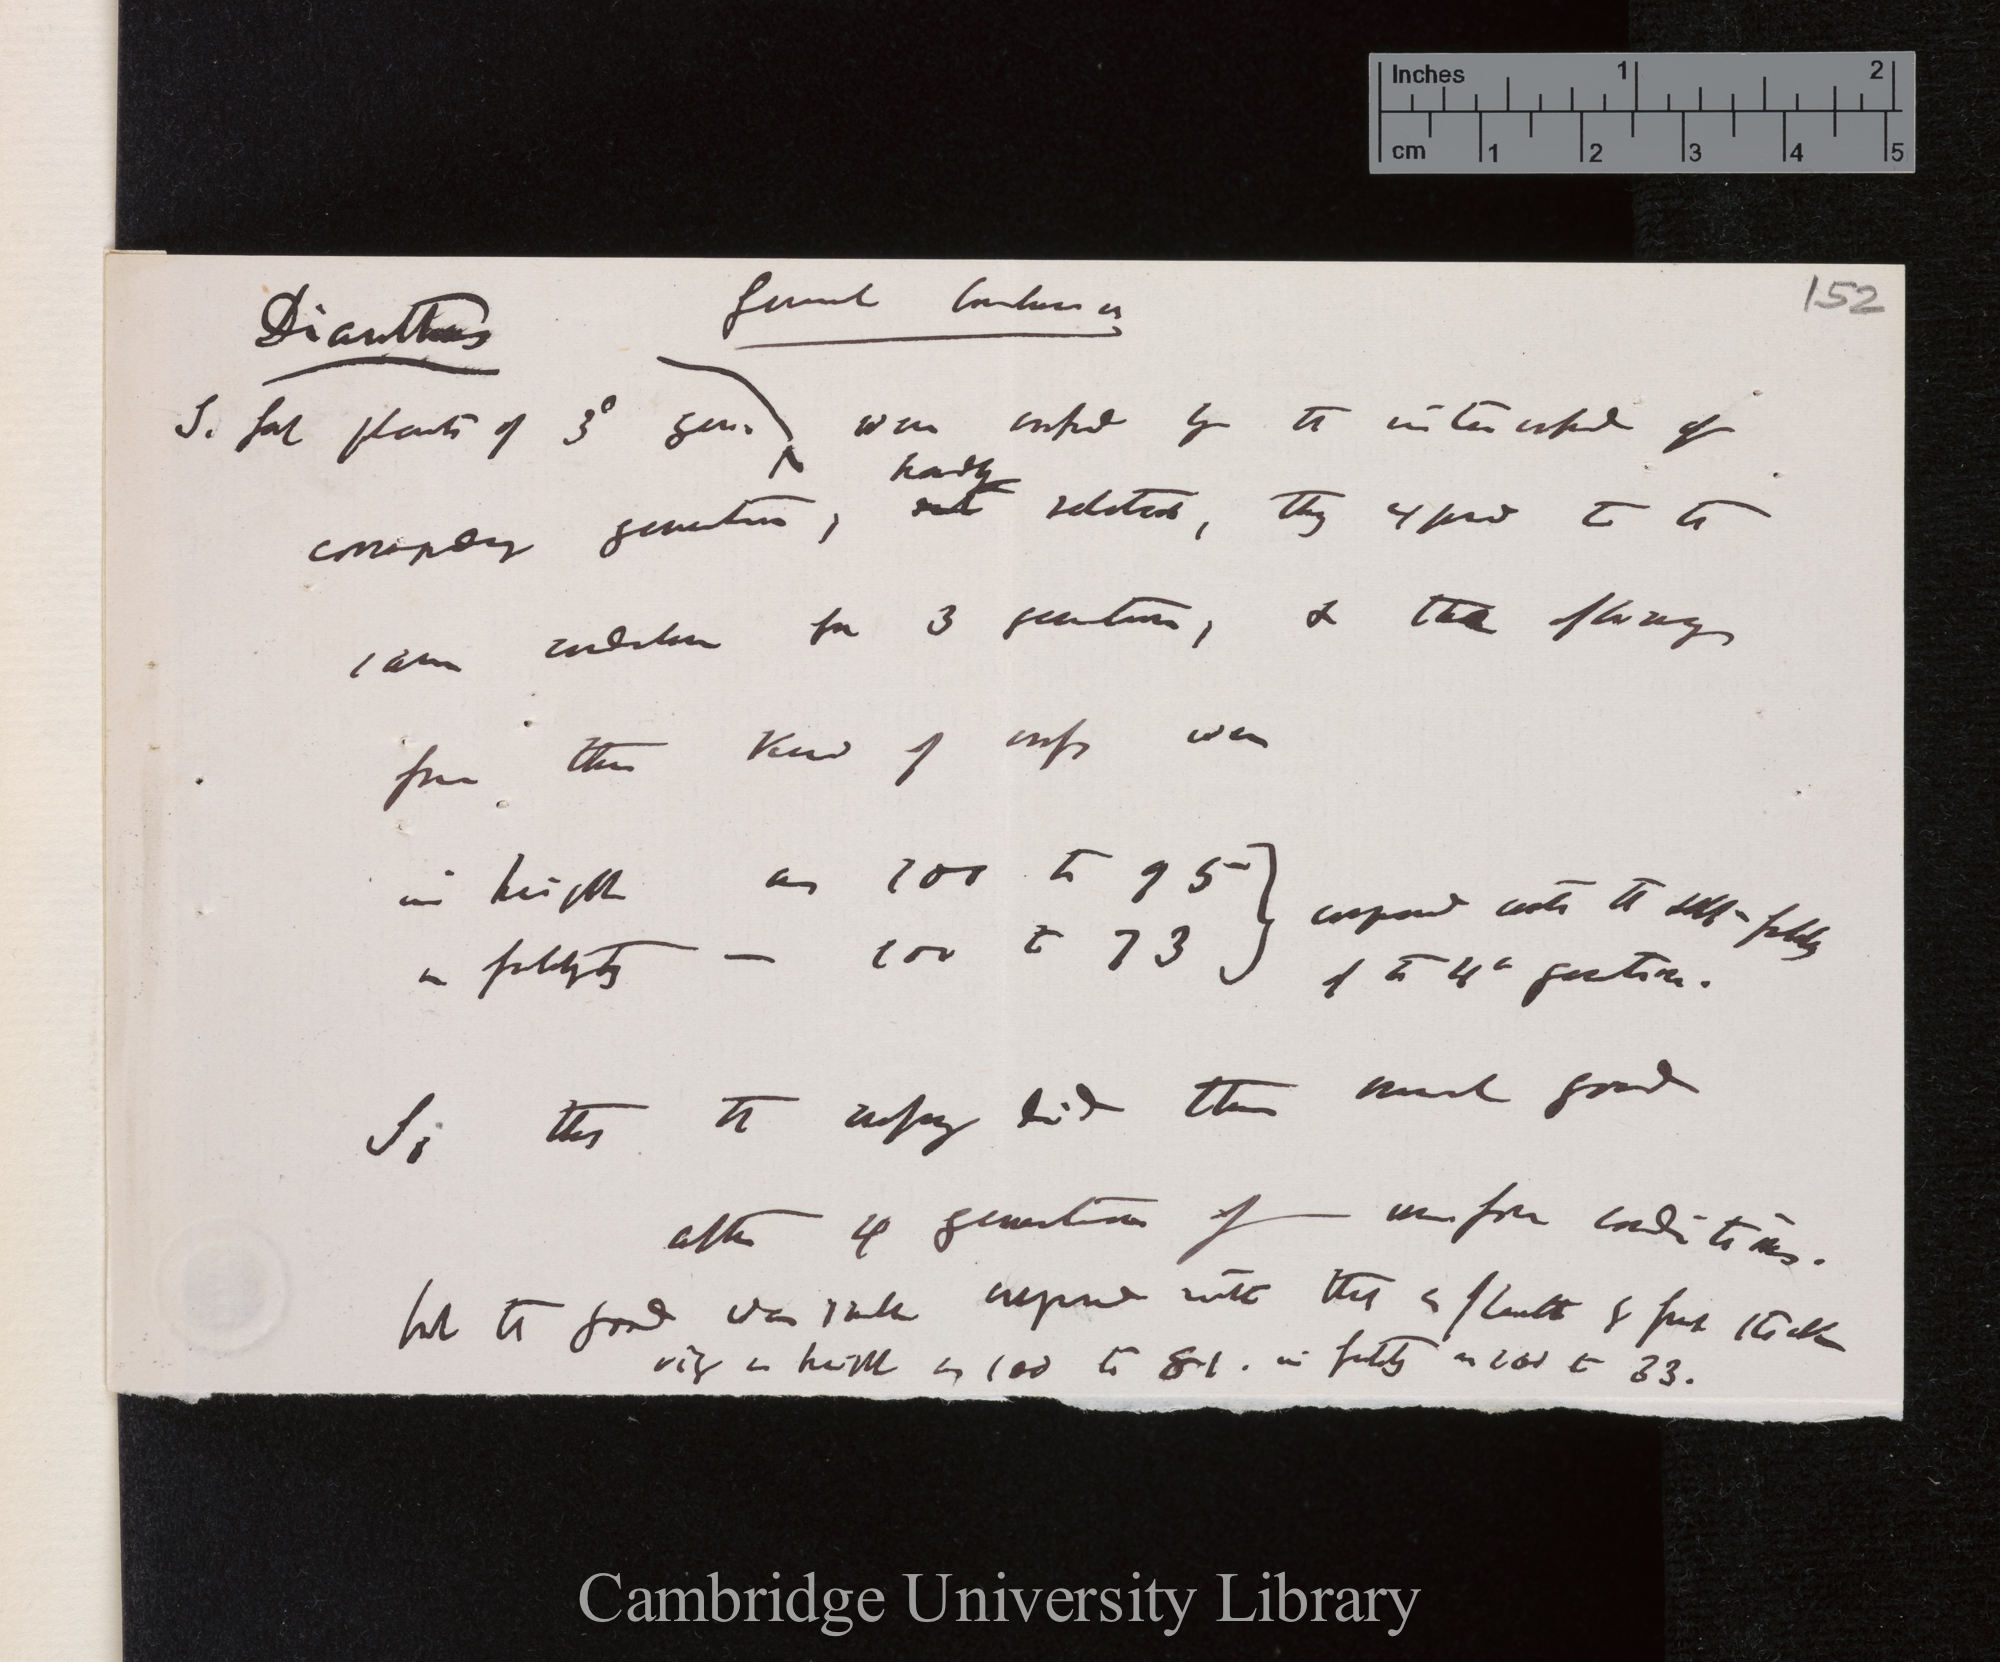 Inches 1 2
cm 1 2 3 4 5
152
Dianthus General Conclusion
S. fert plants of 3° gen. were crossed by the intercrossed of
hardly
corresponding generation, not related, they exposed to the
same conditions for 3 generations, & the offspring
from this kind of cross were
in height as 100 to 95
in fertility — 100 to 73
compared with the self-fertilised
of the 4th generation.
So that the crossing did them much good
after 4 generations of uniform conditions.
but the good was small compared with that a plant of fresh stock
viz in height as 100 to 81. in fertility as 100 to 33.
Cambridge University Library